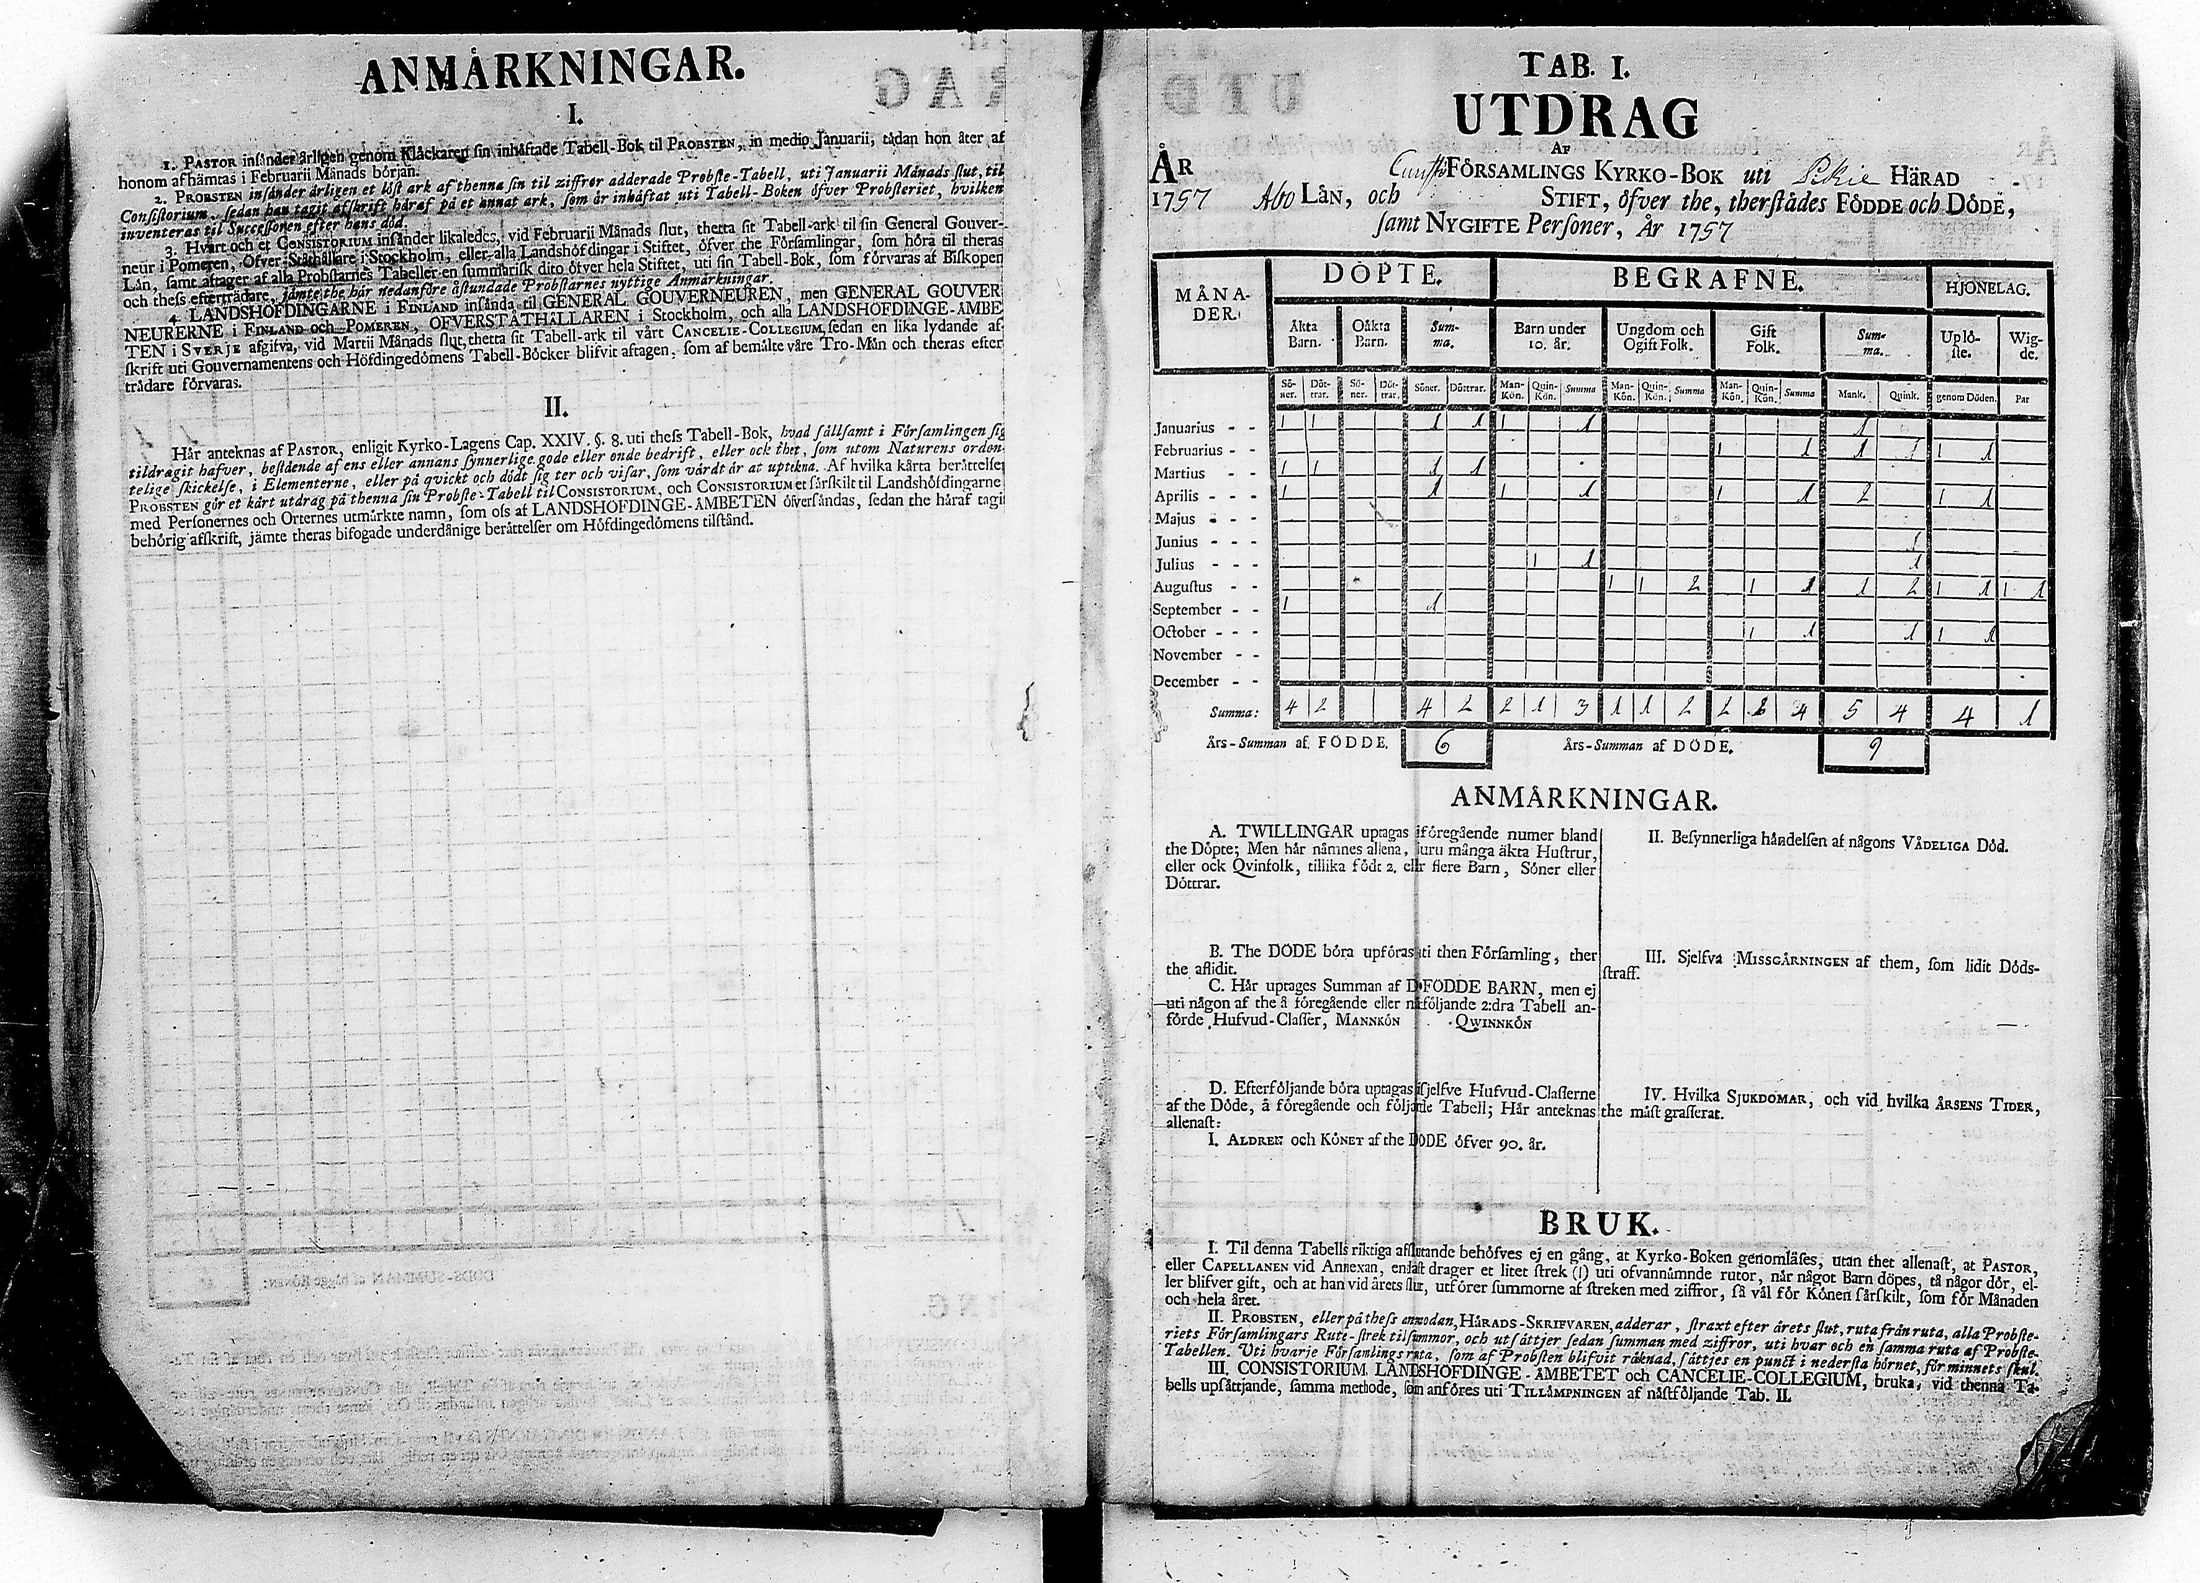 ANMÅRKNINGAR.
I.
1. PASTOR insånder årligen genom Klåckaren sin inhåftade Tabell-Bok til PROBSTEN, in medio Januarii, tådan hon åter af
honom afhåmtas i Februarii Månads början.
2. PROBSTEN insånder årligen et löst ark af thenna sin til ziffror adderade Probste-Tabell, uti Januarii Månads slut, til
Consistorium, sedan han tagit afskrift håraf på et annat ark, som år inhåftat uti Tabell-Boken öfver Probsteriet, hvilken
inventeras til Successoren efter hans död.
3. Hvart och et CONSISTORIUM insånder likaledes, vid Februarii Månads slut, thetta sit Tabell-ark til sin General Gouver-
neur i Pomeren, Öfver-Ståthållare i Stockholm, eller alla Landshöfdingar i Stiftet, öfver the Församlingar, som höra til theras
Lån, samt aftager af alla Probstarnes Tabeller en summarisk dito öfver hela Stiftet, uti sin Tabell-Bok, som förvaras af Biskopen
och thess efterträdare, jämte the hår nedanföre åstundade Probstarnes nyttige Anmärkningar.
4. LANDSHÖFDINGARNE i FINLAND insånda til GENERAL GOUVERNEUREN, men GENERAL GOUVER
NEURERNE i FINLAND och POMEREN, ÖFVERSTÅTHÅLLAREN i Stockholm, och alla LANDSHÖFDINGE-ÅMBE
TEN i SVERJE afgifva, vid Martii Månads slut, thetta sit Tabell-ark til vårt CANCELIE-COLLEGIUM, sedan en lika lydande af-
skrift uti Gouvernamentens och Höfdingedömens Tabell-Böcker blifvit aftagen, som af bemålte våre Tro-Mån och theras efter
trådare förvaras.
II.
Hår anteknas af PASTOR, enligit Kyrko-Lagens Cap. XXIV. §. 8. uti thess Tabell-Bok, hvad sållsamt i Församlingen sig
tildragit hafver, bestående af ens eller annans synnerlige gode eller onde bedrift, eller ock thet, som utom Naturens orden-
telige skickelse, i Elementerne, eller på qvickt och dödt sig ter och visar, som vårdt år at uptekna. Af hvilka kårta beråttelser
PROBSTEN gör et kårt utdrag på thenna sin Probste-Tabell til CONSISTORIUM, och CONSISTORIUM et sårskilt til Landshöfdingarne
med Personernes och Orternes utmårkte namn, som oss af LANDSHÖFDINGE-ÅMBETEN öfversåndas, sedan the håraf tagit
behörig afskrift, jämte theras bifogade underdånige beråttelser om Höfdingedömens tilstånd.
TAB. I.
UTDRAG
AF
ÅR FÖRSAMLINGS KYRKO-BOK uti Pikie HÄRAD
1757 Abo LÅN, och STIFT, öfver the, therstådes FÖDDE och DÖDE,
samt NYGIFTE Personer, År 1757
MÅNA-DER. DÖPTE. BEGRAFNE. HJONELAG.
Äkta Barn. Oåkta Barn. Sum-ma. Barn under 10. år. Ungdom och Ogift Folk. Gift Folk. Sum-ma. Uplö-ste. Wig-de.
Sö-ner. Döt-trar. Sö-ner. Döt-trar. Söner. Döttrar. Man-Kön. Quin-Kön. Summa Man-Kön. Quin-Kön. Summa Man-Kön. Quin-Kön. Summa Mank. Quink. genom Döden. Par
Januarius - - 1 1 1 1 1 1 1
Februarius - - 1 1 1 1 1 1
Martius - - 1 1 1 1
Aprilis - - - 1 1 1 1 1 1 2 1 1
Majus - - -
Junius - - - 1
Julius - - - 1 1 1
Augustus - - 1 1 2 1 1 1 2 1 1 1 1
September - - 1 1
October - - - 1 1 1 1 1
November - -
December - -
Summa: 4 2 4 2 2 1 3 1 1 2 2 2 4 5 4 4 1
Års-Summan af FÖDDE. 6 Års-Summan af DÖDE. 9
ANMÅRKNINGAR.
A. TWILLINGAR uptagas i föregående numer bland
the Döpte; Men hår nåmnes allena, huru många äkta Hustrur,
eller ock Qvinfolk, tillika födt 2. eller flere Barn, Söner eller
Döttrar.
B. The DÖDE böra upföras uti then Församling, ther
the aflidit.
C. Hår uptages Summan af DÖDFÖDDE BARN, men ej
uti någon af the å föregående eller nåstföljande 2:dra Tabell an-
förde Hufvud-Classer, MANNKÖN QWINNKÖN
D. Efterföljande böra uptagas i sjelfve Hufvud-Classerne
af the Döde, å föregående och följande Tabell; Hår anteknas
allenast:
I. ALDREN och KÖNET af the DÖDE öfver 90. år.
II. Besynnerliga håndelsen af någons VÅDELIGA Död.
III. Sjelfva MISSGÅRNINGEN af them, som lidit Döds-
straff.
IV. Hvilka SJUKDOMAR, och vid hvilka ÅRSENS TIDER,
the måst grasserat.
BRUK.
I. Til denna Tabells riktiga afslutande behöfves ej en gång, at Kyrko-Boken genomläses, utan thet allenast, at PASTOR,
eller CAPELLANEN vid Annexan, endast drager et litet strek (|) uti ofvannåmnde rutor, når något Barn döpes, tå någor dör, el-
ler blifver gift, och at han vid årets slut, utförer summorne af streken med ziffror, så vål för Könen sårskilt, som för Månaden
och hela året.
II. PROBSTEN, eller på thess anmodan, HÅRADS-SKRIFVAREN, adderar, straxt efter årets slut, ruta från ruta, alla Probste-
riets Församlingars Rute-strek tilsummor, och utsåttjer sedan summan med ziffror, uti hvar och en samma ruta af Probste-
Tabellen. Uti hvarje Församlings ruta, som af Probsten blifvit råknad, såttjes en punct i nedersta hörnet, för minnets skul.
III. CONSISTORIUM, LANDSHÖFDINGE-ÅMBETET och CANCELIE-COLLEGIUM, bruka, vid thenna Ta-
bells upsåttjande, samma methode, som anföres uti TILLÅMPNINGEN af nåstföljande Tab. II.